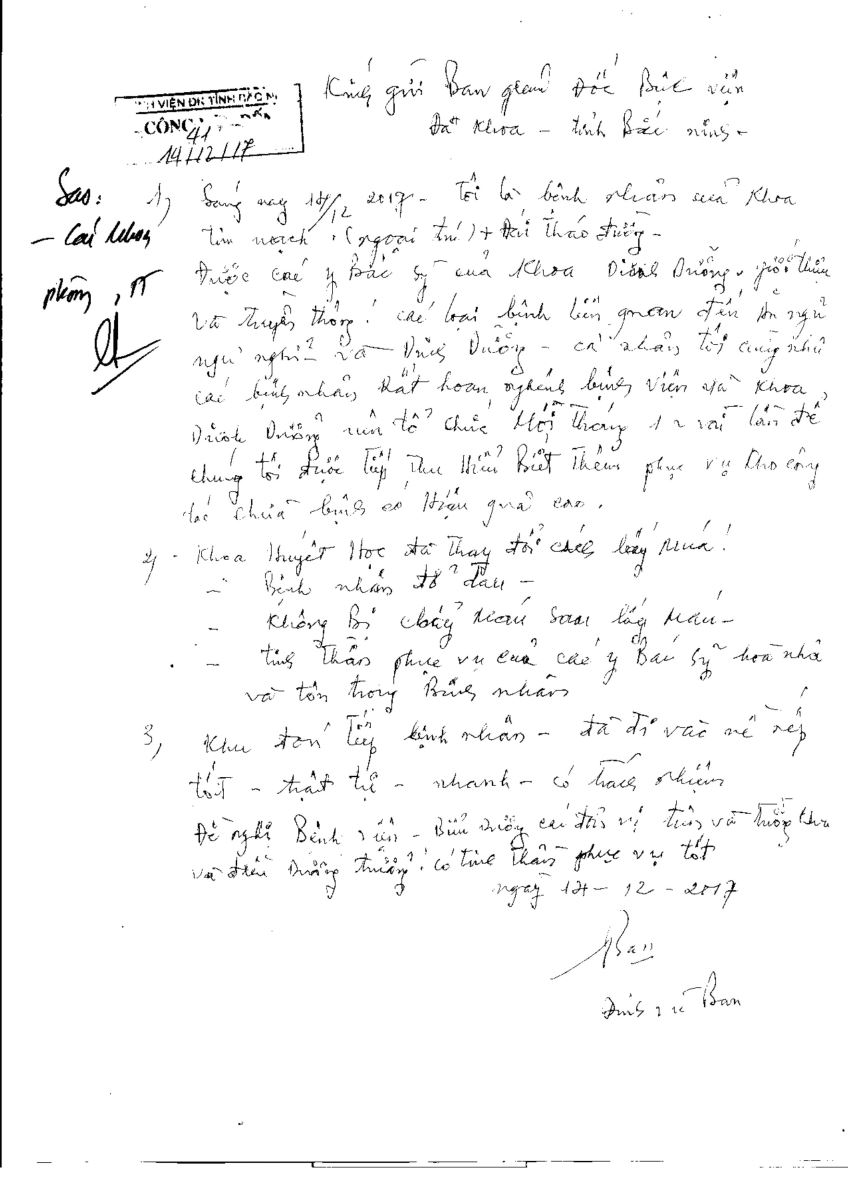 Kính gửi Ban giám Đốc Bệnh viện
Đa Khoa - tỉnh Bắc ninh -
VIỆN ĐK TỈNH BẮC N
CÔNG
41
14/12/17
Sao:
- Các khoa
phòng, TT
1, Sáng nay 14/12 2017 - Tôi là bệnh nhân của Khoa
tim mạch. (ngoại trú) + Đái Tháo đường -
Được các y Bác sỹ của Khoa Dinh Dưỡng giới thiệu
Và truyền thông! các loại bệnh liên quan đến ăn ngủ
nghỉ và Dinh Dưỡng - cá nhân tôi cũng như
các bệnh nhân Rất hoan nghênh bệnh viện và Khoa
Dinh Dưỡng nên tổ chức Mỗi tháng 1 vài lần để
chúng tôi được tiếp thu Hiểu Biết Thêm phục vụ cho công
tác chữa bệnh có Hiệu quả cao.
2, - Khoa Huyết Học đã thay đổi cách lấy Máu!
- Bệnh nhân đỡ đau -
- Không Bị chảy Máu sau lấy Máu -
- tinh thần phục vụ của các y Bác sỹ hoà nhã
và tôn trọng Bệnh nhân
3, Khu đón tiếp bệnh nhân - đã đi vào nề nếp
tốt - trật tự - nhanh - có trách nhiệm
Đề nghị Bệnh viện - Biểu dương các đơn vị trên và trưởng khoa
và điều Dưỡng trưởng! có tinh thần phục vụ tốt
ngày 14 - 12 - 2017
Ban
Đinh Ban